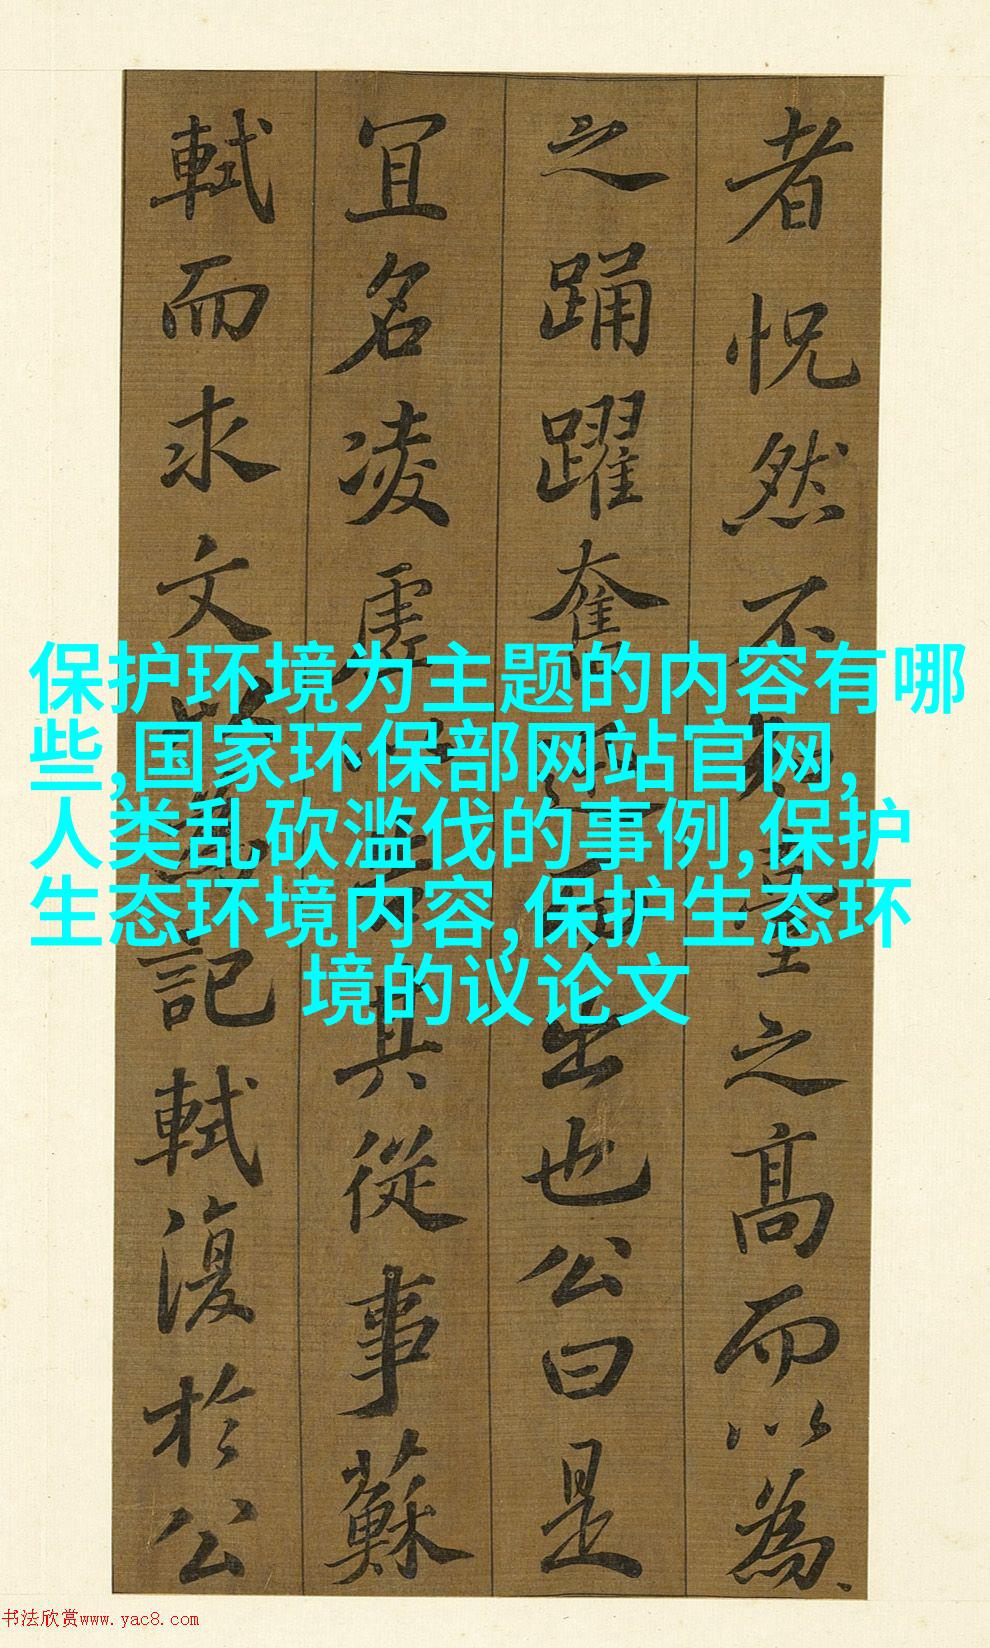 者怳然不知臺之高而以為
之踊躍奮迅而出也公曰是
冝名凌虛以告其從事蘇
軾而求文以為記軾復於公
保护环境为主题的内容有哪
些,国家环保部网站官网,
人类乱砍滥伐的事例,保护
生态环境内容,保护生态环
境的议论文
书法欣赏www.yac8.com